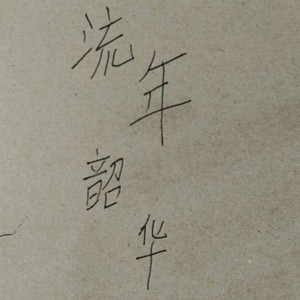 流年
韶华